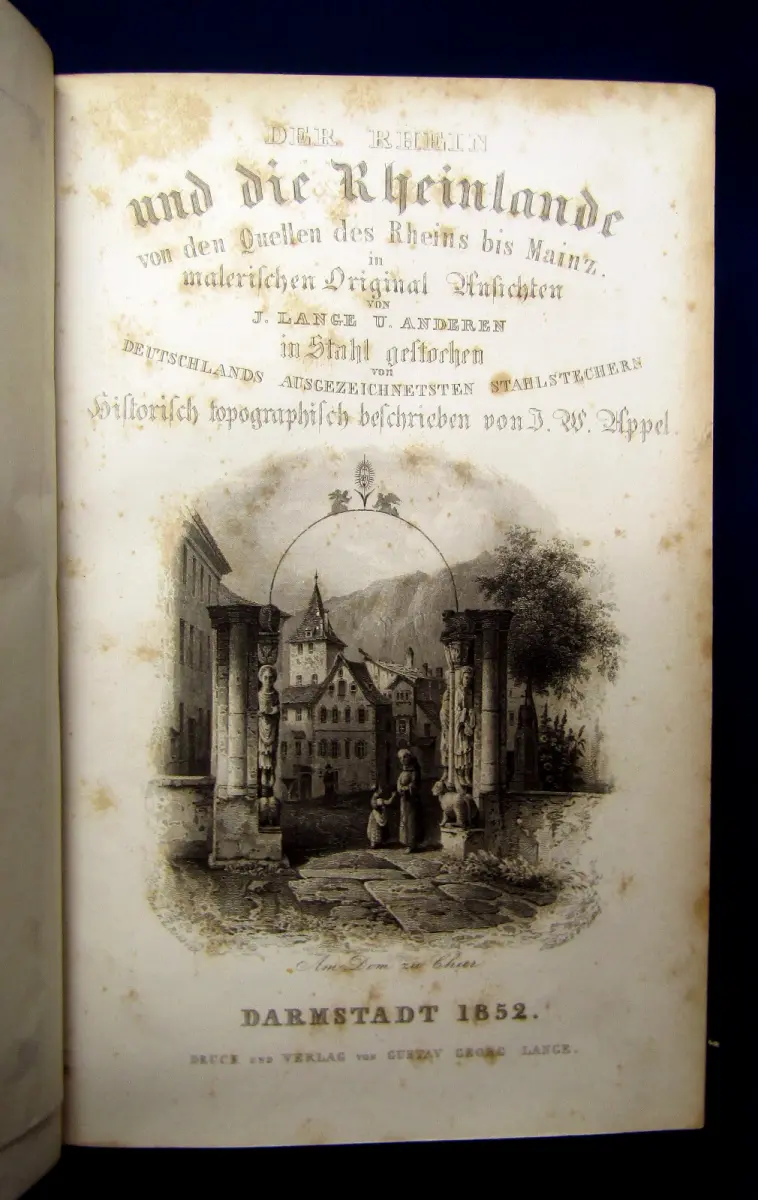 DER RHEIN
und die Rheinlande
von den Quellen des Rheins bis Mainz.
in
malerischen Original Ansichten
VON
J. LANGE U. ANDEREN
in Stahl gestochen
von
DEUTSCHLANDS AUSGEZEICHNETSTEN STAHLSTECHERN
Historisch topographisch beschrieben von J. W. Appel
Am Dom zu Chur
DARMSTADT 1852.
DRUCK UND VERLAG VON GUSTAV GEORG LANGE.